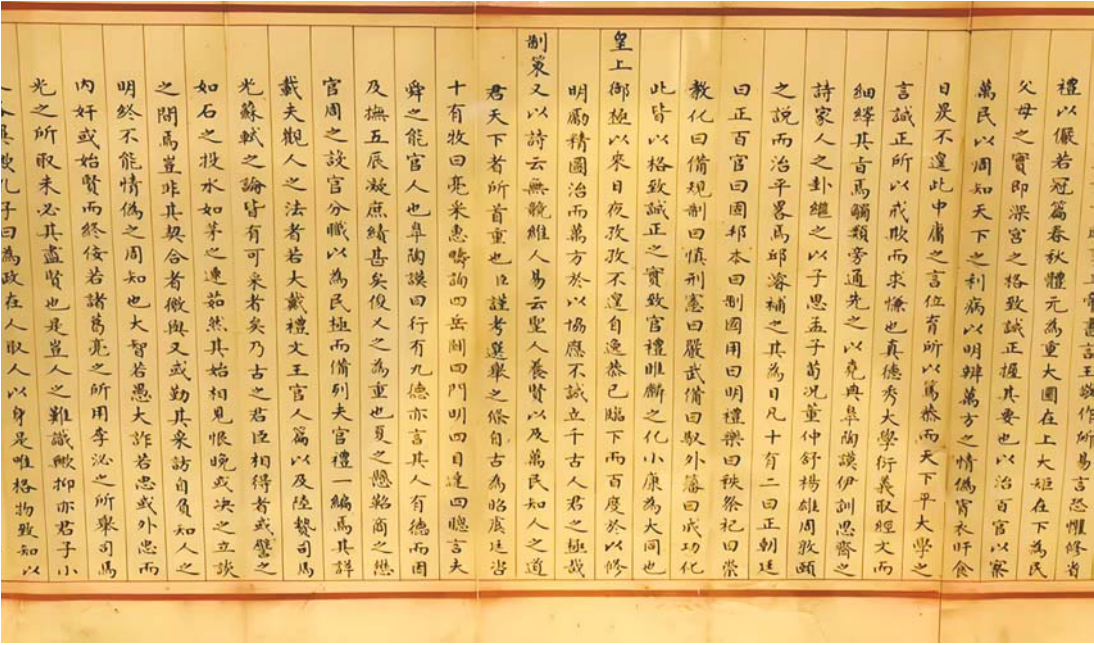 書言王敬作所易言恐懼修省
禮以儼若冠篇春秋體元為重大圜在上大矩在下為民
父母之實即深宮之格致誠正握其要也以治百官以察
萬民以周知天下之利病以明辨萬方之情偽宵衣旰食
日昃不遑此中庸之言位育所以篤恭而天下平大學之
言誠正所以戒欺而求慊也真德秀大學衍義取經文而
細繹其旨焉觸類旁通先之以堯典皋陶謨伊訓思齊之
詩家人之卦繼之以子思孟子荀況董仲舒揚雄周敦頤
之說而治平畧焉邱濬補之其為目凡十有二曰正朝廷
曰正百官曰固邦本曰制國用曰明禮樂曰秩祭祀曰崇
教化曰備規制曰慎刑憲曰嚴武備曰馭外藩曰成功化
此皆以格致誠正之實致官禮睢麟之化小康為大同也
皇上御極以來日夜孜孜不遑自逸恭己臨下而百度於以修
明勵精圖治而萬方於以協應不誠立千古人君之極哉
制策又以詩云無競維人易云聖人養賢以及萬民知人之道
君天下者所首重也臣謹考選舉之條自古為昭虞廷咨
十有牧曰亮采惠疇詢四岳闢四門明四目達四聰言夫
舜之能官人也皋陶謨曰行有九德亦言其人有德而因
及撫五辰凝庶績甚矣俊乂之為重也夏之懸鞀商之懋
官周之設官分職以為民極而備列夫官禮一編焉其詳
載夫觀人之法者若大戴禮文王官人篇以及陸贄司馬
光蘇軾之論皆有可采者矣乃古之君臣相得者或譬之
如石之投水如茅之連茹然其始相見恨晚或決之立談
之間焉豈非其契合者微與又或勤其采訪自負知人之
明終不能情偽之周知也大智若愚大詐若忠或外忠而
內奸或始賢而終佞若諸葛亮之所用李泌之所舉司馬
光之所取未必其盡賢也是豈人之難識歟抑亦君子小
歟孔子曰為政在人取人以身是唯格物致知以